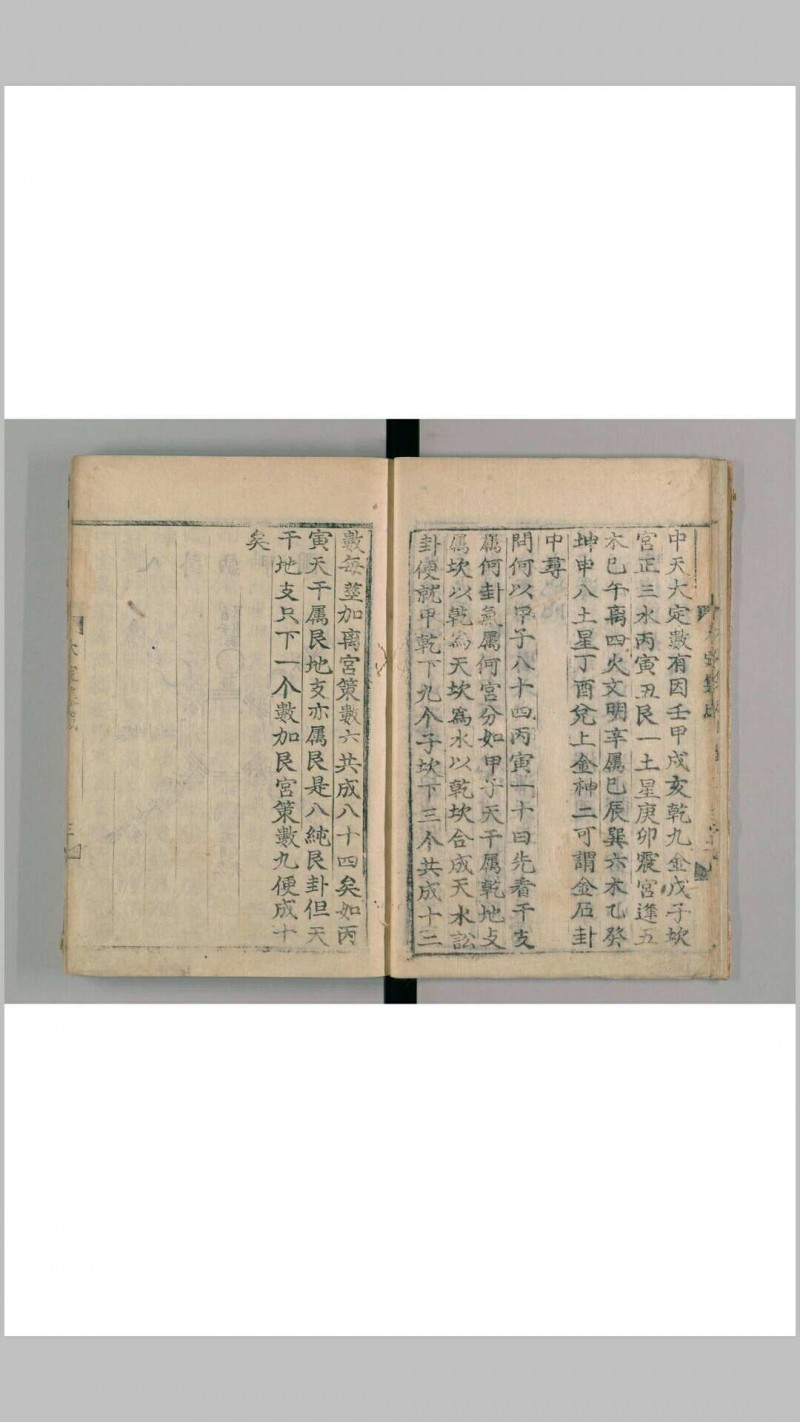 中天大定數有因壬甲戌亥乾九金戊子坎
宮正三水丙寅丑艮一土星庚卯震宮逢五
木巳午离四火文明辛属巳辰巽六木乙癸
坤申八土星丁酉兌上金神二可謂金石卦
中尋
問何以甲子八十四丙寅一十曰先看干支
属何卦氣属何宮分如甲子天干属乾地支
属坎以乾為天坎為水以乾坎合成天水訟
卦便就甲乾下九个子坎下三个共成十二
數每莖加离宮策數六共成八十四矣如丙
寅天干属艮地支亦属艮是八純艮卦但天
干地支只下一个數加艮宮策數九便成十
矣